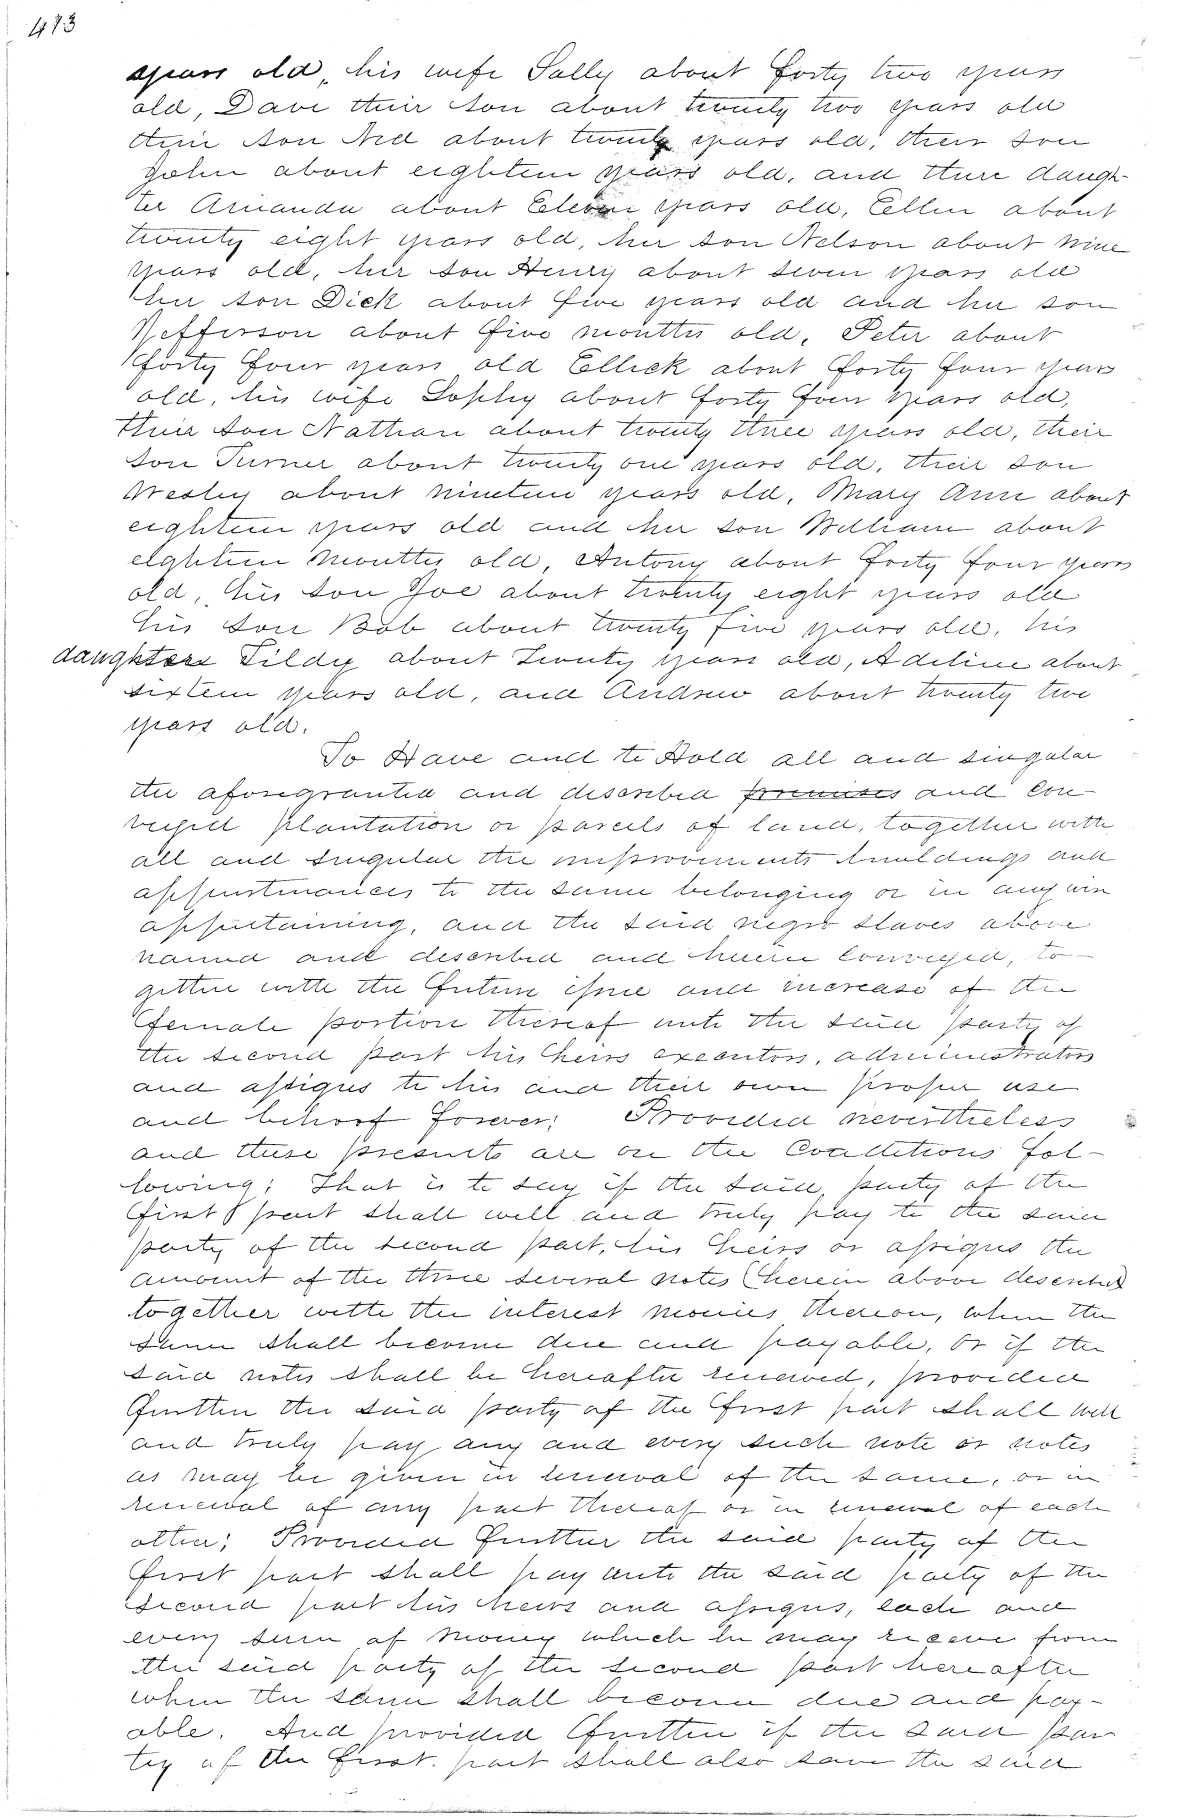 473
years old, his wife Sally about forty two years
old, Dave their son about twenty two years old
their son Ned about twenty years old, their son
John about eighteen years old, and there daugh-
ter Amanda about Eleven years old, Ellen about
twenty eight years old, her son Nelson about nine
years old, her son Henry about seven years old
her son Dick about five years old and her son
Jefferson about five months old, Peter about
forty four years old Ellick about forty four years
old, his wife Sophy about forty four years old,
their son Nathan about twenty three years old, their
son Turner about twenty one years old, their son
Wesley about nineteen years old, Mary Ann about
eighteen years old and her son William about
eighteen months old, Antony about forty four years
old, his son Joe about twenty eight years old
his son Bob about twenty five years old, his
daughters Tildy about twenty years old, Adeline about
sixteen years old, and Andrew about twenty two
years old.
To Have and to Hold all and singular
the aforegranted and described premises and con-
veyed plantation or parcels of land, together with
all and singular the improvements buildings and
appurtenances to the same belonging or in any wise
appertaining, and the said negro slaves above
named and described and herein conveyed, to-
gether with the future issue and increase of the
female portion thereof unto the said party of
the second part his heirs executors, administrators
and assigns to his and their own proper use
and behoof forever; Provided nevertheless
and these presents are on the Conditions fol-
lowing; That is to say if the said party of the
first part shall well and truly pay to the said
party of the second part, his heirs or assigns the
amount of the three several notes (herein above described
together with the interest monies thereon, when the
same shall become due and payable, or if the
said notes shall be hereafter renewed, provided
further the said party of the first part shall well
and truly pay any and every such note or notes
as may be given in renewal of the same, or in
renewal of any part thereof or in renewal of each
other; Provided further the said party of the
first part shall pay unto the said party of the
second part his heirs and assigns, each and
every sum of money which he may receive from
the said party of the second part hereafter
when the same shall become due and pay-
able. And provided further if the said par
ty of the first part shall also save the said